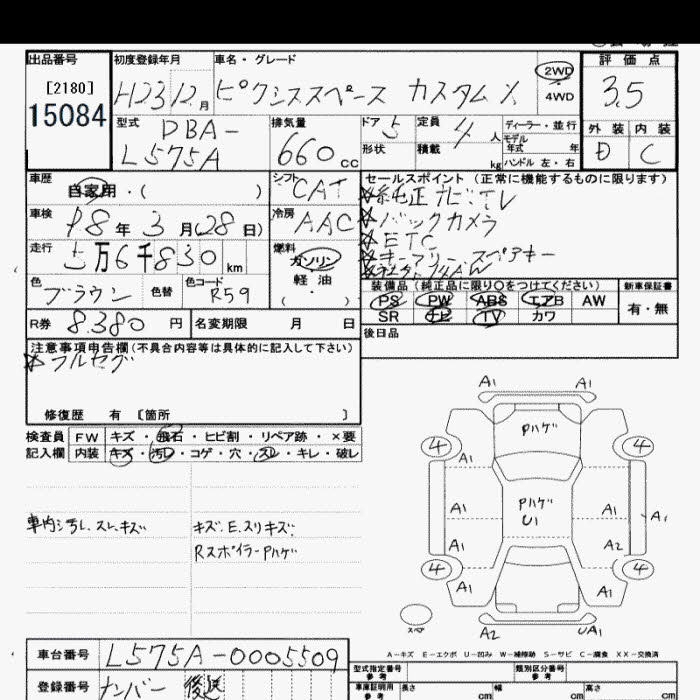 出品番号 初度登録年月 車名・グレード 評価点
[2180]
15084
H23 12月 ピクシススペース カスタムX 2WD 3.5
4WD
型式 排気量 ドア 5 定員 4人 ディーラー・並行 外装 内装
DBA-
モデル年式 年
L575A 660cc 形状 積載 kg ハンドル 左・右 D C
車歴 シフト CAT セールスポイント(正常に機能するものに限ります)
自家用・( )
☆純正ナビTV
車検 P8年3月(28日) 冷房 AAC
☆バックカメラ
☆ETC
走行 5万6千830km 燃料 ガソリン
☆キーフリースペアキー
軽油
・
( )
色 ブラウン 色替 色コード R59
装備品(純正品に限り〇をつけてください) 新車保証書
PS PW ABS エアB AW 有・無
SR ナビ TV カワ
R券 8.380円 名変期限 月 日
後日品
注意事項申告欄(不具合内容等は具体的に記入して下さい)
☆フルセグ
修復歴 有 〔箇所 〕
検査員 FW キズ・飛石・ヒビ割・リペア跡・×要
記入欄 内装 キズ・汚レ・コゲ・穴・スレ・キレ・破レ
車内汚レ.スレ.キズ キズ.E.スリキズ.
RスポイラーPハゲ
A1 A1
Pハゲ
4 4
A1
Pハゲ
U1
A1 A1 A1
A1 A2
4 4
A1 A1
スペア
A2 UA1
A−キズ E−エクボ U−凹み W−補修跡 S−サビ C−腐食 XX−交換済
車台番号 L575A-0005509
型式指定番号 類別区分番号
参考 参考
登録番号 ナンバー後送
車庫証明用 長さ cm 幅 cm 高さ cm
参考